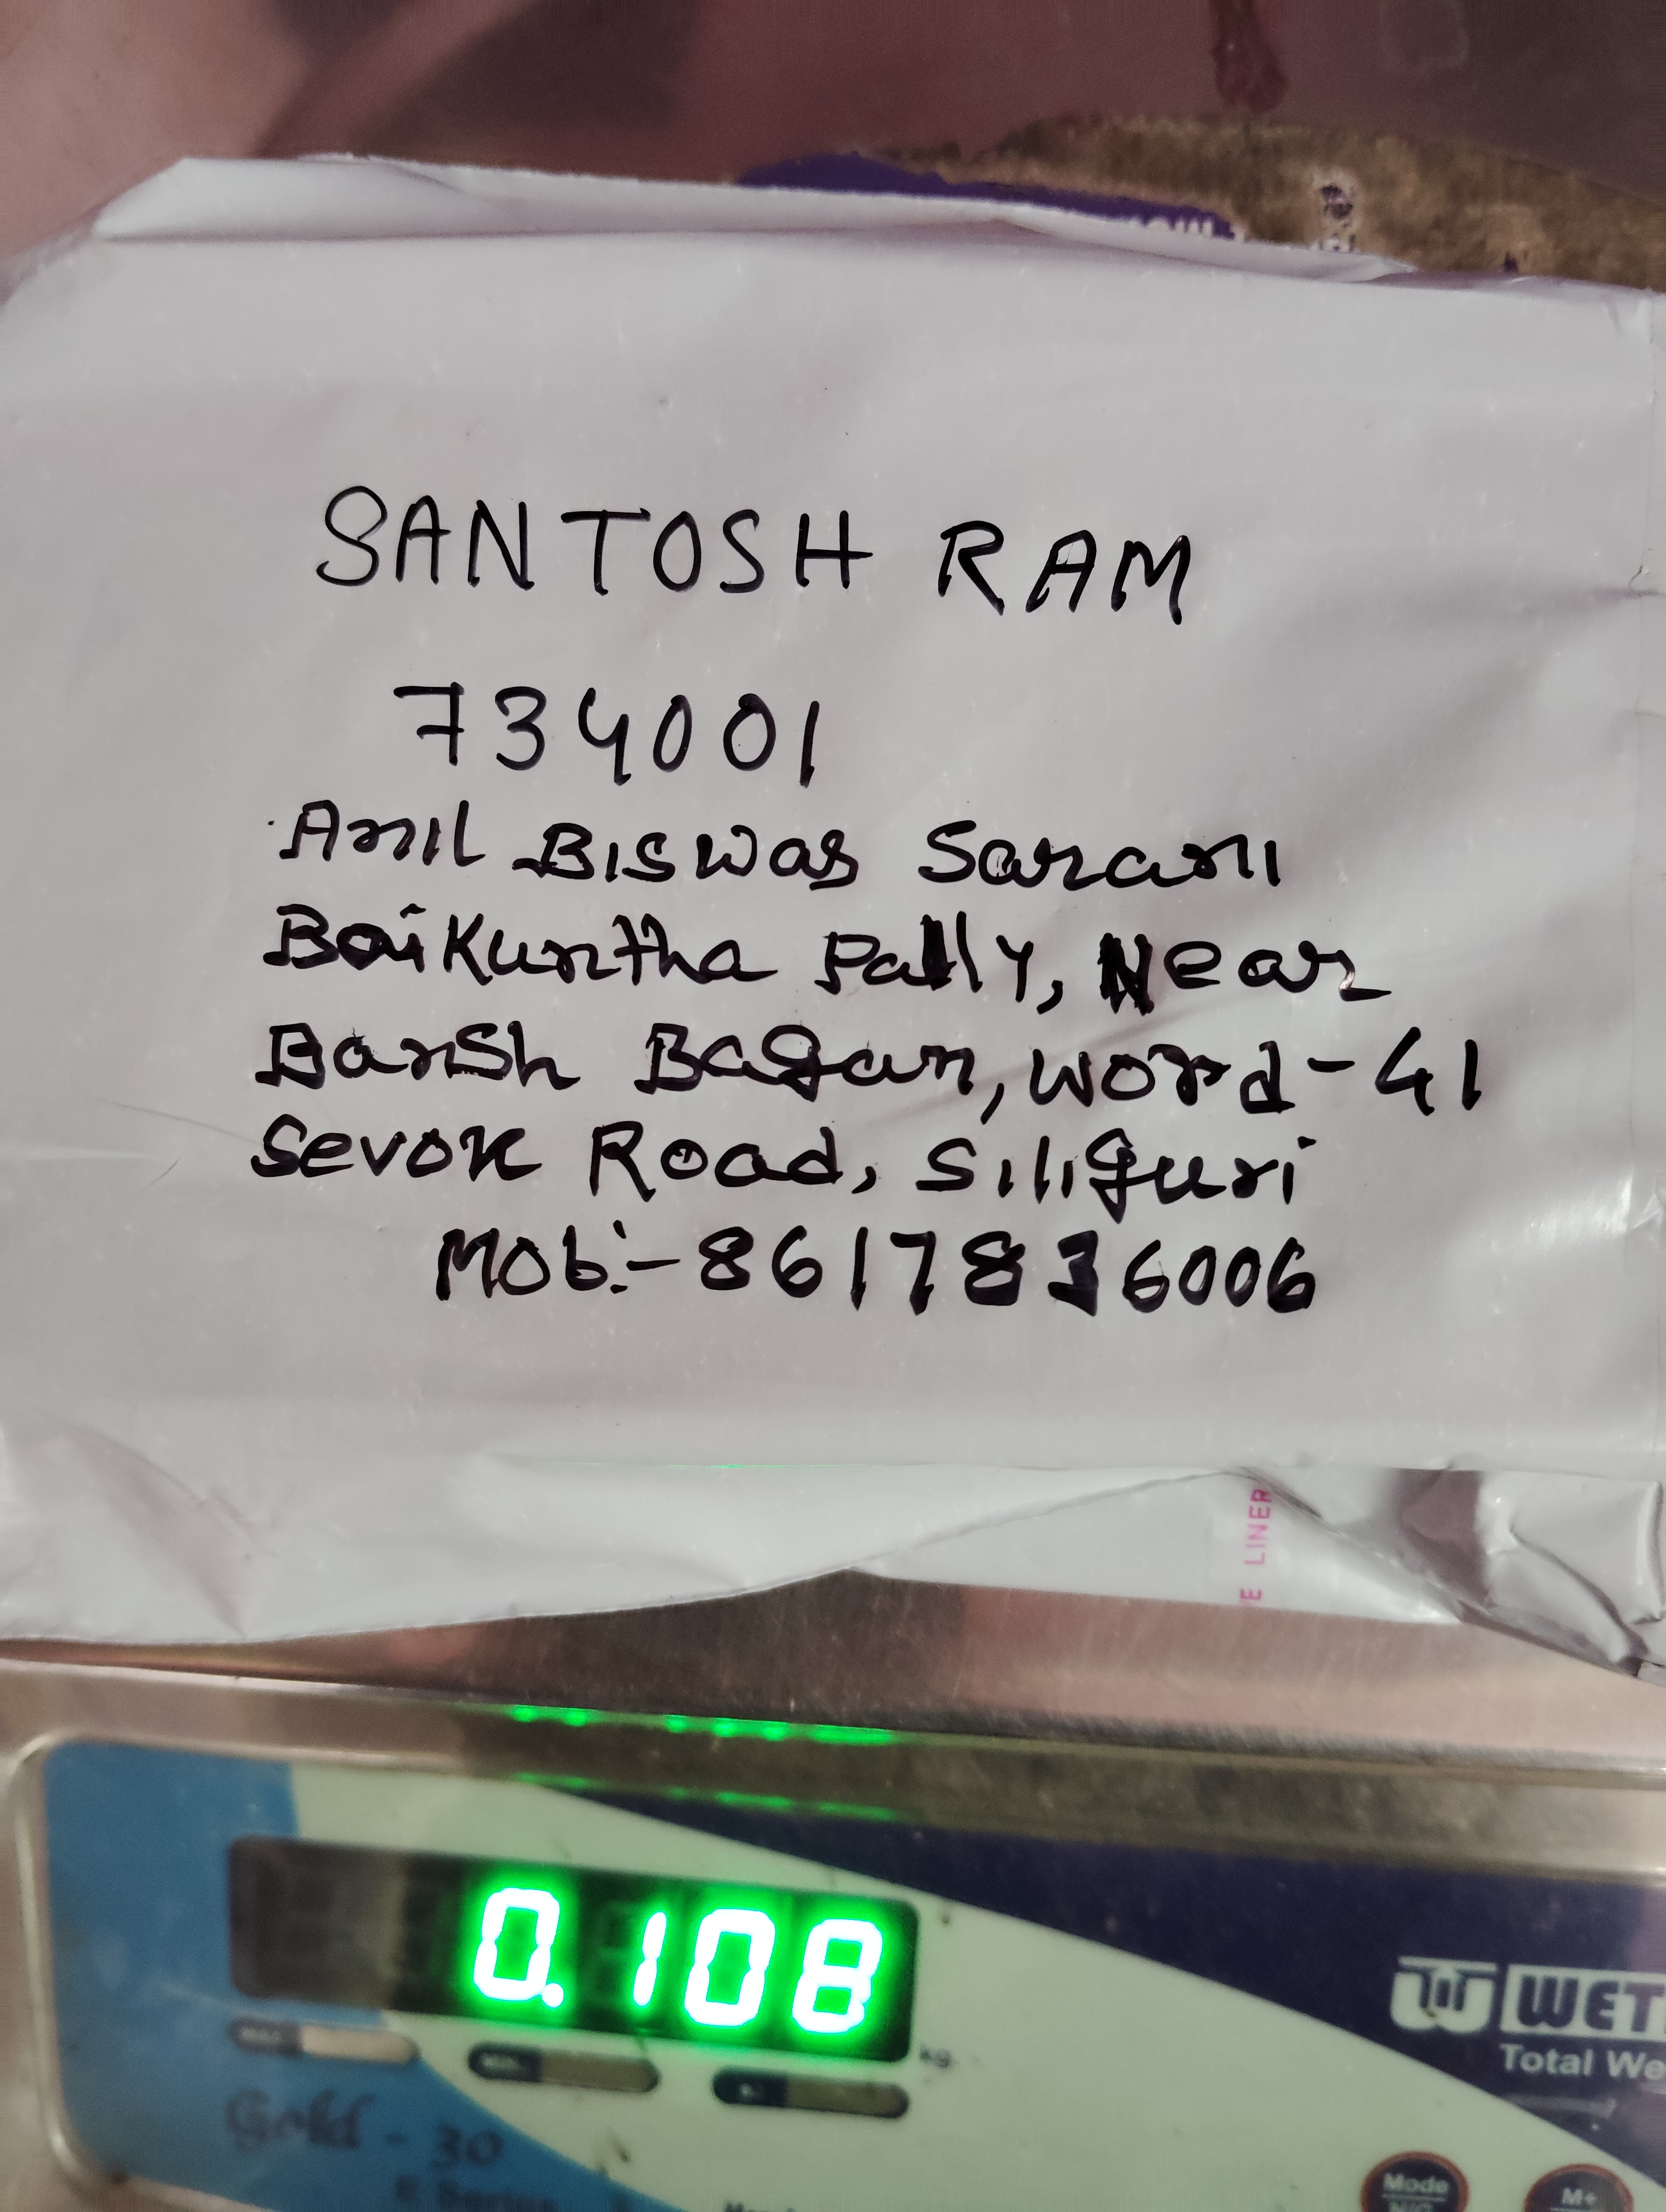 SANTOSH RAM
734001
Anil Biswas Sarani
Baikuntha Pally, Near
Bansh Bagan, word-41
Sevok Road, Siliguri
Mob:-8617836006
E LINER
0.108
kg
WET
Total We
Gold - 30
E Series
Mode
M+